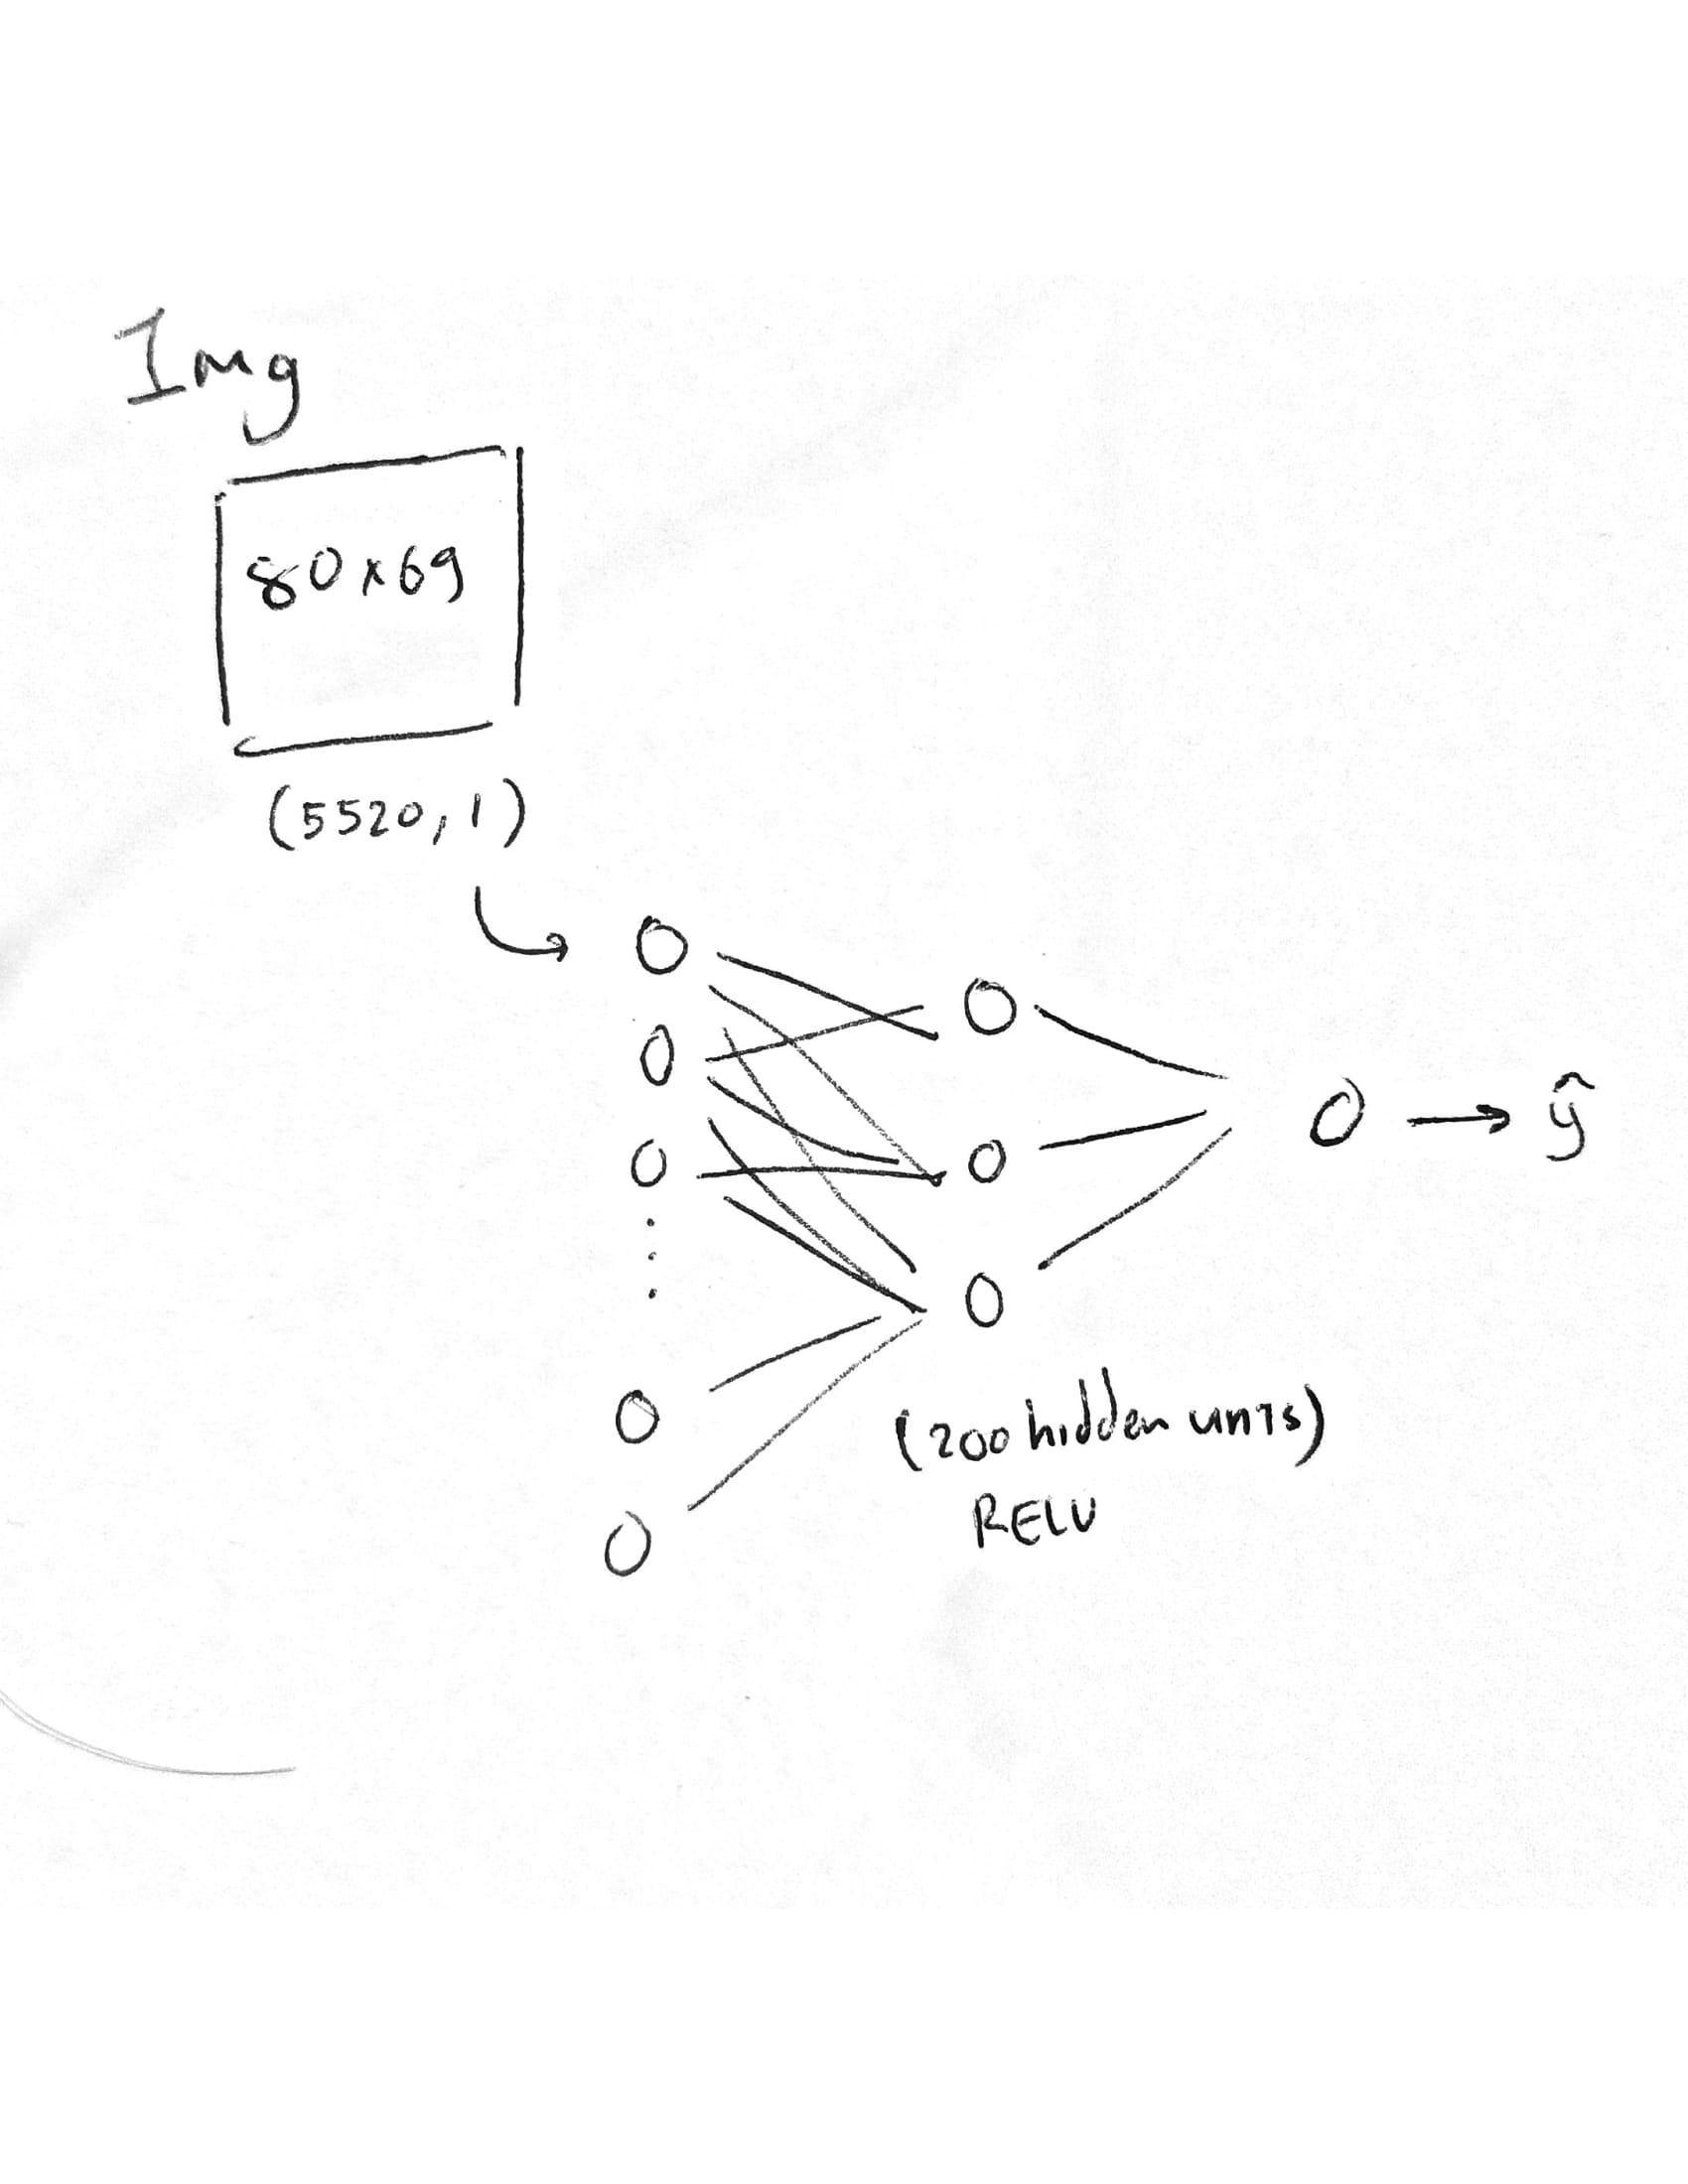 Img
80x69
(5520, 1)
ŷ
(200 hidden units)
RELU